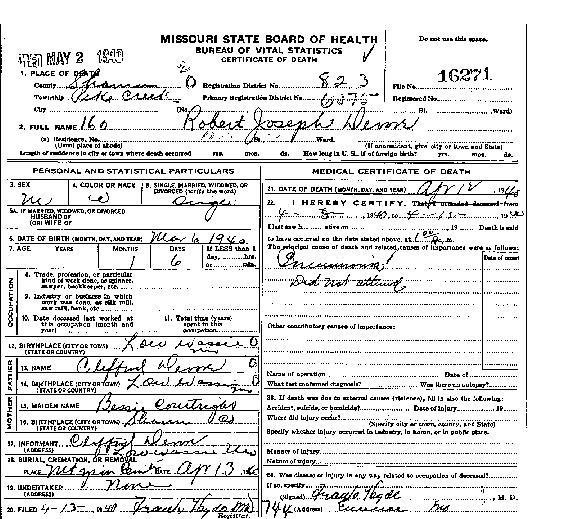 MISSOURI STATE BOARD OF HEALTH
BUREAU OF VITAL STATISTICS
CERTIFICATE OF DEATH
Do not use this space.
MAY 2 1940
16271
1. PLACE OF DEATH
County Shannon Registration District No. 823 File No.
Township Pike Creek Primary Registration District No. Registered No.
City (No. St. Ward)
2. FULL NAME 160 Robert Joseph
(a) Residence, No. St. Ward.
(Usual place of abode) (If nonresident, give city or town and State)
Length of residence in city or town where death occurred yrs. mos. ds. How long in U. S., if of foreign birth? yrs. mos. ds.
PERSONAL AND STATISTICAL PARTICULARS
3. SEX 4. COLOR OR RACE 5. SINGLE, MARRIED, WIDOWED, OR DIVORCED (write the word)
M W Single
5A. IF MARRIED, WIDOWED, OR DIVORCED
HUSBAND OF
(OR) WIFE OF
6. DATE OF BIRTH (MONTH, DAY, AND YEAR) Mar 6 1940
7. AGE YEARS MONTHS DAYS If LESS than 1 day, hrs. or min.
1 6
OCCUPATION
8. Trade, profession, or particular kind of work done, as spinner, sawyer, bookkeeper, etc.
9. Industry or business in which work was done, as silk mill, saw mill, bank, etc.
10. Date deceased last worked at this occupation (month and year)
11. Total time (years) spent in this occupation
12. BIRTHPLACE (CITY OR TOWN) Low wassie
(STATE OR COUNTRY) Mo
FATHER
13. NAME Clifford
14. BIRTHPLACE (CITY OR TOWN) Low wassie
(STATE OR COUNTRY) Mo
MOTHER
15. MAIDEN NAME Bessie
16. BIRTHPLACE (CITY OR TOWN) Shannon Co
(STATE OR COUNTRY)
17. INFORMANT Clifford
(ADDRESS) Low wassie Mo
18. BURIAL, CREMATION, OR REMOVAL
PLACE DATE Apr 13 40
19. UNDERTAKER None
(ADDRESS)
20. FILED 4-13 1940 Frank Hyde MD
Registrar.
MEDICAL CERTIFICATE OF DEATH
21. DATE OF DEATH (MONTH, DAY, AND YEAR) Apr 12, 1940
22. I HEREBY CERTIFY, That I attended deceased from
4 - 8 - 1940, to 4 - 1940
I last saw h alive on 19 Death is said
to have occurred on the date stated above, at m.
The principal cause of death and related causes of importance were as follows:
Date of onset
Pneumonia
Did not attend
Other contributory causes of importance:
Name of operation Date of
What test confirmed diagnosis? Was there an autopsy?
23. If death was due to external causes (violence), fill in also the following:
Accident, suicide, or homicide? Date of injury 19
Where did injury occur?
(Specify city or town, county, and State)
Specify whether injury occurred in industry, in home, or in public place.
Manner of injury
Nature of injury
24. Was disease or injury in any way related to occupation of deceased?
If so, specify
(Signed) Frank Hyde, M. D.
744 (Address) Eminence Mo